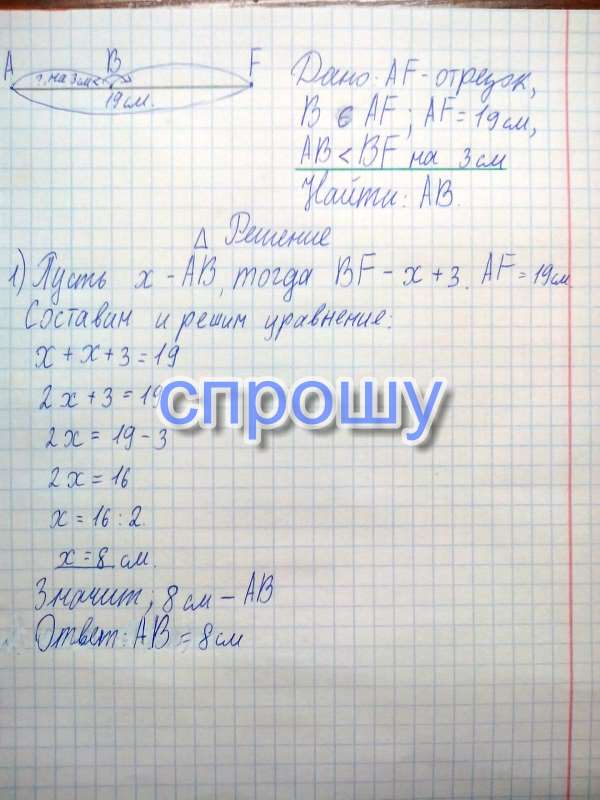 A B F
?, на 3 см <
19 см.
Дано: AF - отрезок,
B ∈ AF; AF = 19 см,
AB < BF на 3 см
Найти: AB.
Δ Решение
1) Пусть x - AB, тогда BF - x + 3. AF = 19 см
Составим и решим уравнение:
x + x + 3 = 19
2x + 3 = 19
спрошу
2x = 19 - 3
2x = 16
x = 16 : 2.
x = 8 см.
Значит, 8 см - AB
Ответ: AB = 8 см